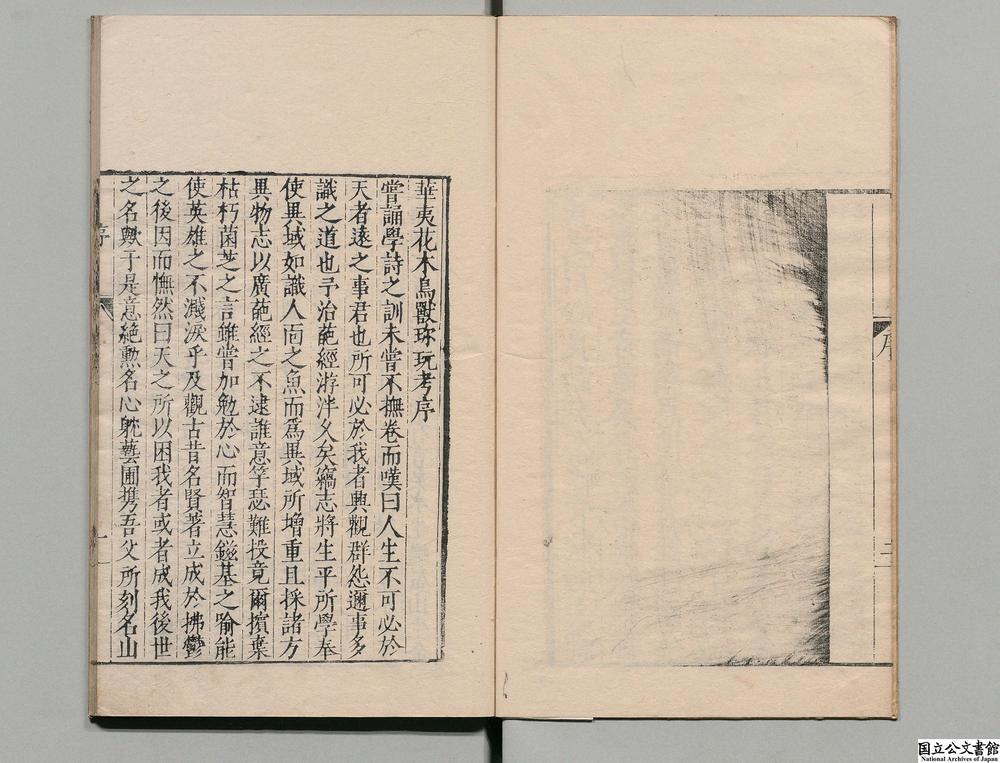 序
三
華夷花木鳥獸珍玩考序
嘗誦學詩之訓未嘗不撫卷而嘆曰人生不可必於
天者遠之事君也所可必於我者興觀群怨邇事多
識之道也予治葩經游泮久矣竊志將生平所學奉
使異域如識人面之魚而爲異域所增重且採諸方
異物志以廣葩經之不逮誰意竽瑟難投竟爾擯棄
枯朽菌芝之言雖嘗加勉於心而智慧鎡基之喻能
使英雄之不濺淚乎及觀古昔名賢著立成於拂鬱
之後因而憮然曰天之所以困我者或者成我後世
之名歟于是意絶勲名心躭藝圃携吾父所刻名山
序
一
国立公文書館
National Archives of Japan